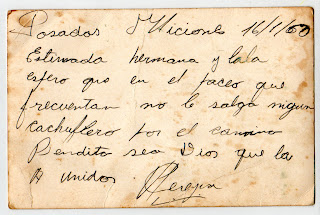 Posados Micione 16/1/60
Estimada hermana y lala
espero que en el paceo que
frecuentan no le salga ningun
cachuflero por el camino
Bendito sea Dios que la
a unidos.